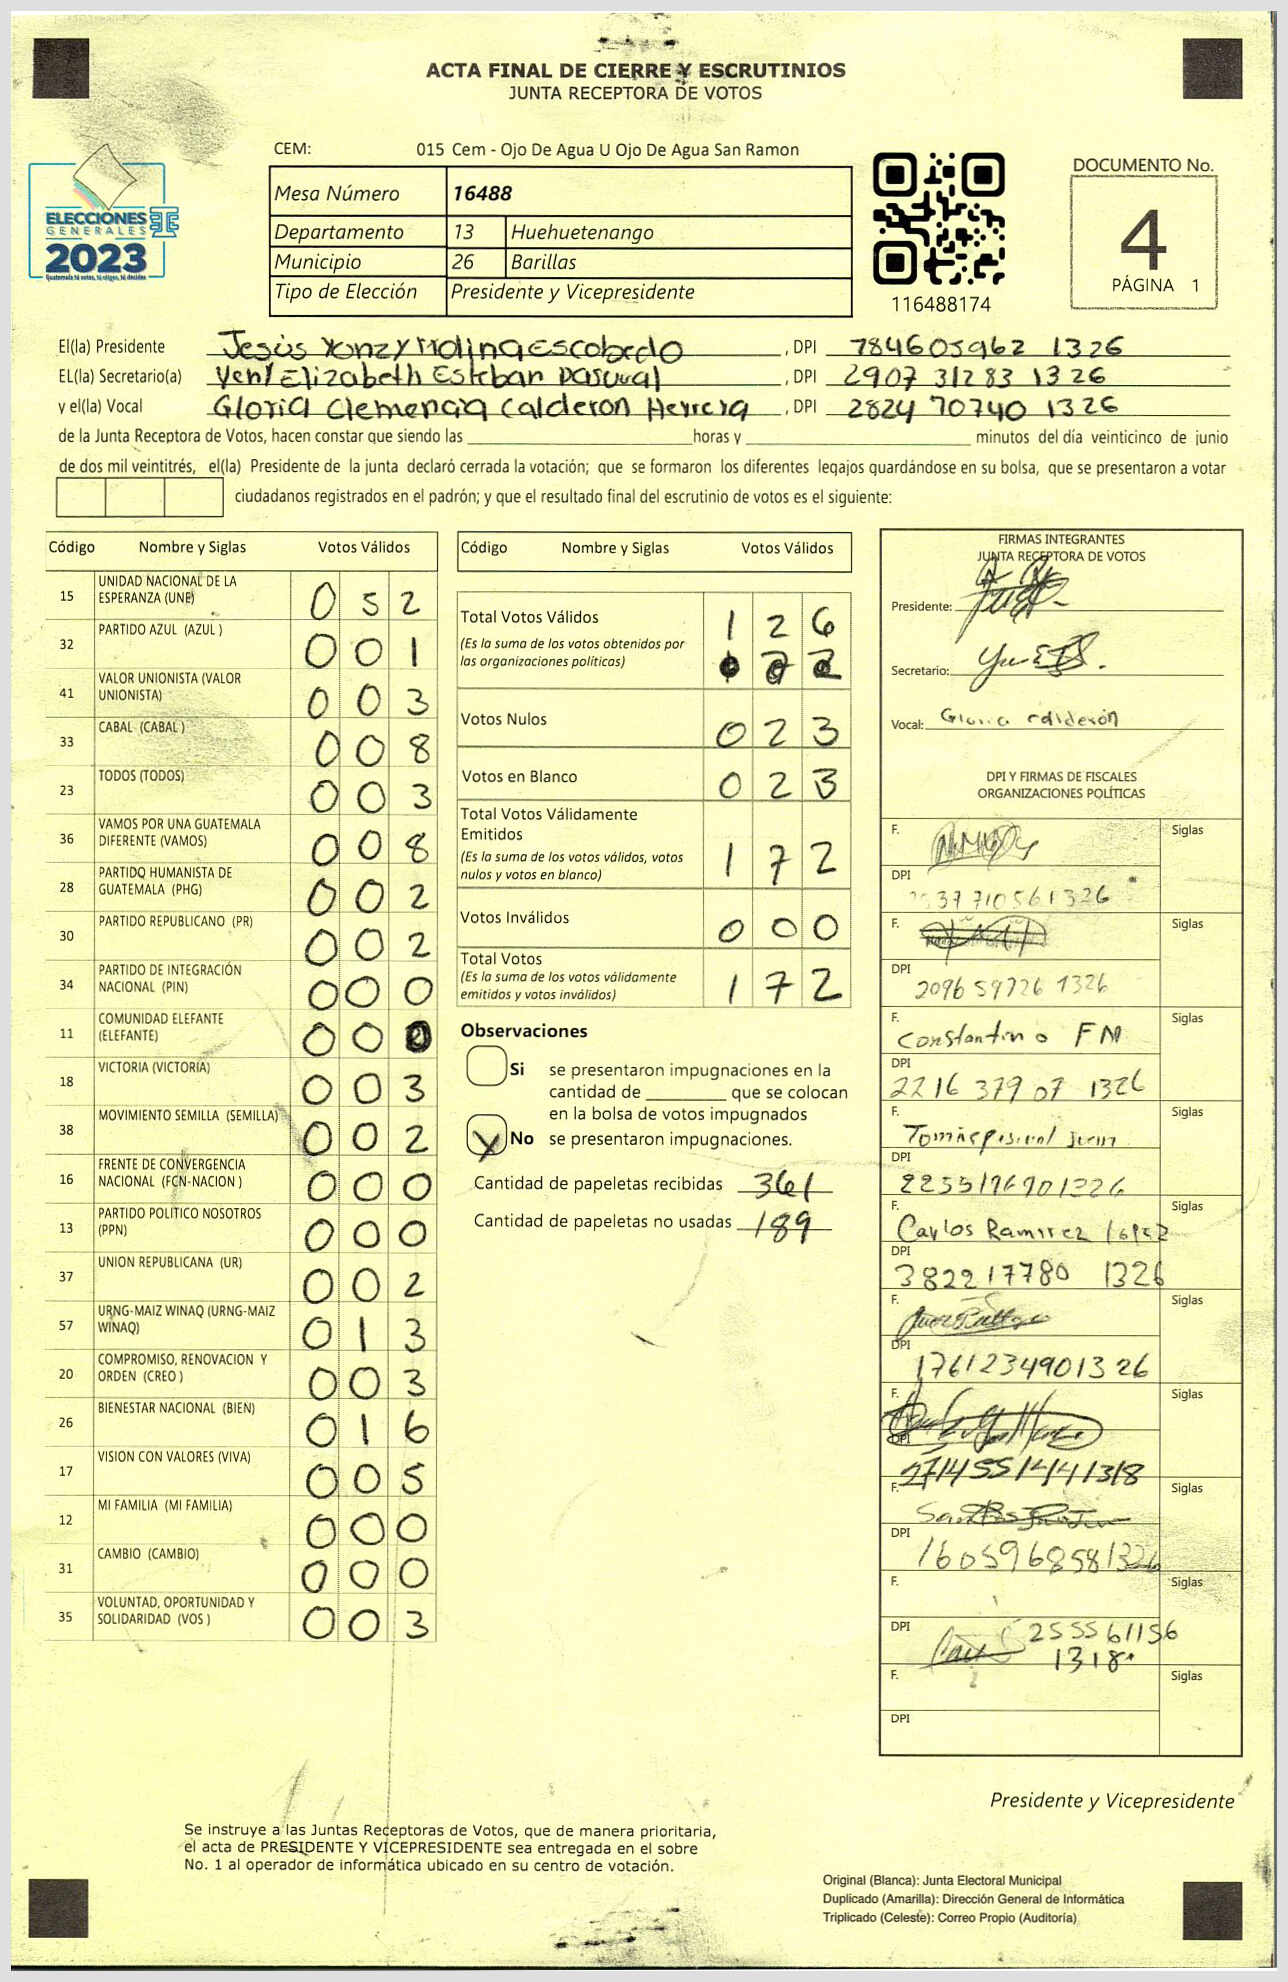 ACTA FINAL DE CIERRE Y ESCRUTINIOS
JUNTA RECEPTORA DE VOTOS
CEM: 015 Cem - Ojo De Agua U Ojo De Agua San Ramon
ELECCIONES
GENERALES
2023
Guatemala tú votas, tú eliges, tú decides
Mesa Número 16488
Departamento 13 Huehuetenango
Municipio 26 Barillas
Tipo de Elección Presidente y Vicepresidente
116488174
DOCUMENTO No.
4
PÁGINA 1
El(la) Presidente Jesús Yonzy Molina Escobedo , DPI 784605962 1326
EL(la) Secretario(a) Yeny Elizabeth Esteban Pascual , DPI 2907 31283 1326
y el(la) Vocal Gloria Clemencia Calderon Herrera , DPI 2824 70740 1326
de la Junta Receptora de Votos, hacen constar que siendo las horas y minutos del día veinticinco de junio
de dos mil veintitrés, el(la) Presidente de la junta declaró cerrada la votación; que se formaron los diferentes legajos guardándose en su bolsa, que se presentaron a votar
ciudadanos registrados en el padrón; y que el resultado final del escrutinio de votos es el siguiente:
Código Nombre y Siglas Votos Válidos
15 UNIDAD NACIONAL DE LA ESPERANZA (UNE) 0 5 2
32 PARTIDO AZUL (AZUL ) 0 0 1
41 VALOR UNIONISTA (VALOR UNIONISTA) 0 0 3
33 CABAL (CABAL ) 0 0 8
23 TODOS (TODOS) 0 0 3
36 VAMOS POR UNA GUATEMALA DIFERENTE (VAMOS) 0 0 8
28 PARTIDO HUMANISTA DE GUATEMALA (PHG) 0 0 2
30 PARTIDO REPUBLICANO (PR) 0 0 2
34 PARTIDO DE INTEGRACIÓN NACIONAL (PIN) 0 0 0
11 COMUNIDAD ELEFANTE (ELEFANTE) 0 0 0
18 VICTORIA (VICTORIA) 0 0 3
38 MOVIMIENTO SEMILLA (SEMILLA) 0 0 2
16 FRENTE DE CONVERGENCIA NACIONAL (FCN-NACION ) 0 0 0
13 PARTIDO POLITICO NOSOTROS (PPN) 0 0 0
37 UNION REPUBLICANA (UR) 0 0 2
57 URNG-MAIZ WINAQ (URNG-MAIZ WINAQ) 0 1 3
20 COMPROMISO, RENOVACION Y ORDEN (CREO ) 0 0 3
26 BIENESTAR NACIONAL (BIEN) 0 1 6
17 VISION CON VALORES (VIVA) 0 0 5
12 MI FAMILIA (MI FAMILIA) 0 0 0
31 CAMBIO (CAMBIO) 0 0 0
35 VOLUNTAD, OPORTUNIDAD Y SOLIDARIDAD (VOS ) 0 0 3
Código Nombre y Siglas Votos Válidos
Total Votos Válidos 1 2 6
(Es la suma de los votos obtenidos por
las organizaciones políticas)
Votos Nulos 0 2 3
Votos en Blanco 0 2 3
Total Votos Válidamente
Emitidos
(Es la suma de los votos válidos, votos
nulos y votos en blanco) 1 7 2
Votos Inválidos 0 0 0
Total Votos
(Es la suma de los votos válidamente
emitidos y votos inválidos) 1 7 2
Observaciones
Si se presentaron impugnaciones en la
cantidad de que se colocan
en la bolsa de votos impugnados
X No se presentaron impugnaciones.
Cantidad de papeletas recibidas 361
Cantidad de papeletas no usadas 189
FIRMAS INTEGRANTES
JUNTA RECEPTORA DE VOTOS
Presidente:
Secretario:
Vocal: Gloria calderón
DPI Y FIRMAS DE FISCALES
ORGANIZACIONES POLÍTICAS
F. Siglas
DPI
F. Siglas
DPI 2096 59726 1326
F. Constantino FM Siglas
DPI 2216 37907 1326
F. Siglas
DPI
F. Carlos Ramirez lopez Siglas
DPI 3822 17780 1326
F. Siglas
DPI 1761234901326
F. Siglas
DPI 2714551441318
F. Siglas
DPI 1605968581326
F. Siglas
DPI 255561156
1318
F. Siglas
DPI
Presidente y Vicepresidente
Se instruye a las Juntas Receptoras de Votos, que de manera prioritaria,
el acta de PRESIDENTE Y VICEPRESIDENTE sea entregada en el sobre
No. 1 al operador de informática ubicado en su centro de votación.
Original (Blanca): Junta Electoral Municipal
Duplicado (Amarilla): Dirección General de Informática
Triplicado (Celeste): Correo Propio (Auditoría)